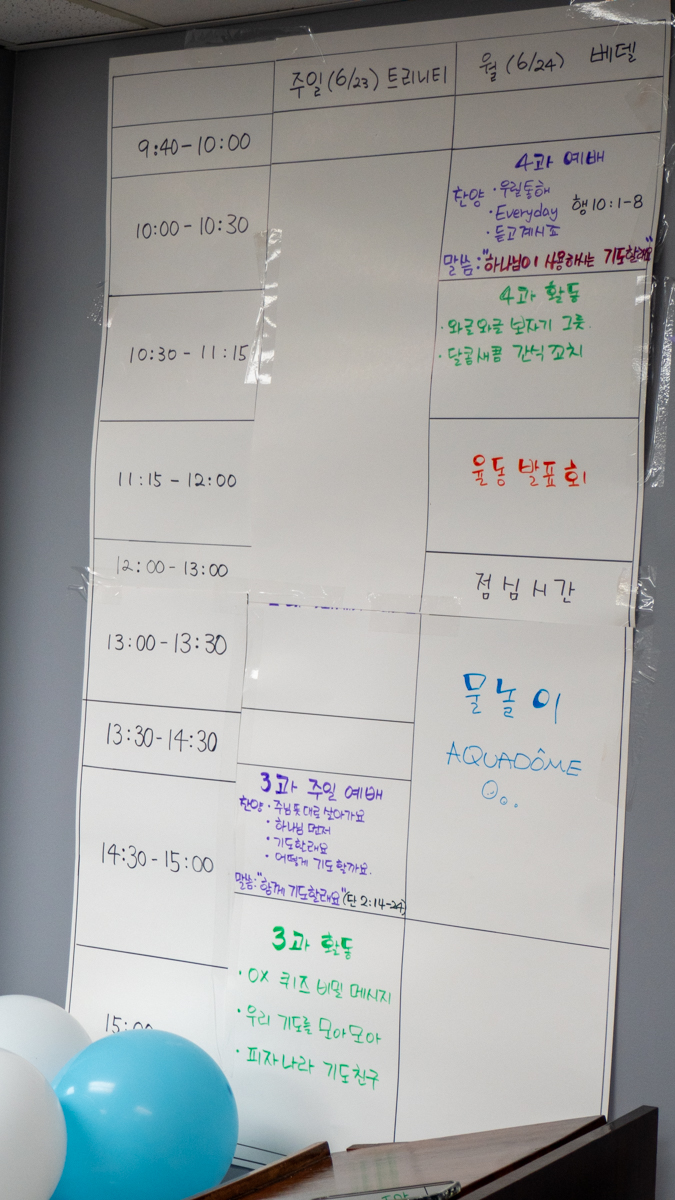 주일(6/23) 트리니티
월(6/24) 베델
9:40-10:00
10:00-10:30
4과 예배
찬양 · 우릴 통해
· Everyday
· 듣고 계시죠
행10:1-8
말씀:"하나님이 사용하시는 기도할래요"
10:30-11:15
4과 활동
· 와글와글 보자기 그릇
· 달콤새콤 간식 꼬치
11:15-12:00
율동 발표회
12:00-13:00
점심시간
13:00-13:30
물놀이
AQUADÔME
13:30-14:30
14:30-15:00
3과 주일 예배
찬양 · 주님 뜻대로 살아가요
· 하나님 먼저
· 기도할래요
· 어떻게 기도할까요.
말씀:"함께 기도할래요"(단 2:14-24)
15:00
3과 활동
· OX 퀴즈 비밀 메시지
· 우리 기도를 모아모아
· 피자나라 기도친구